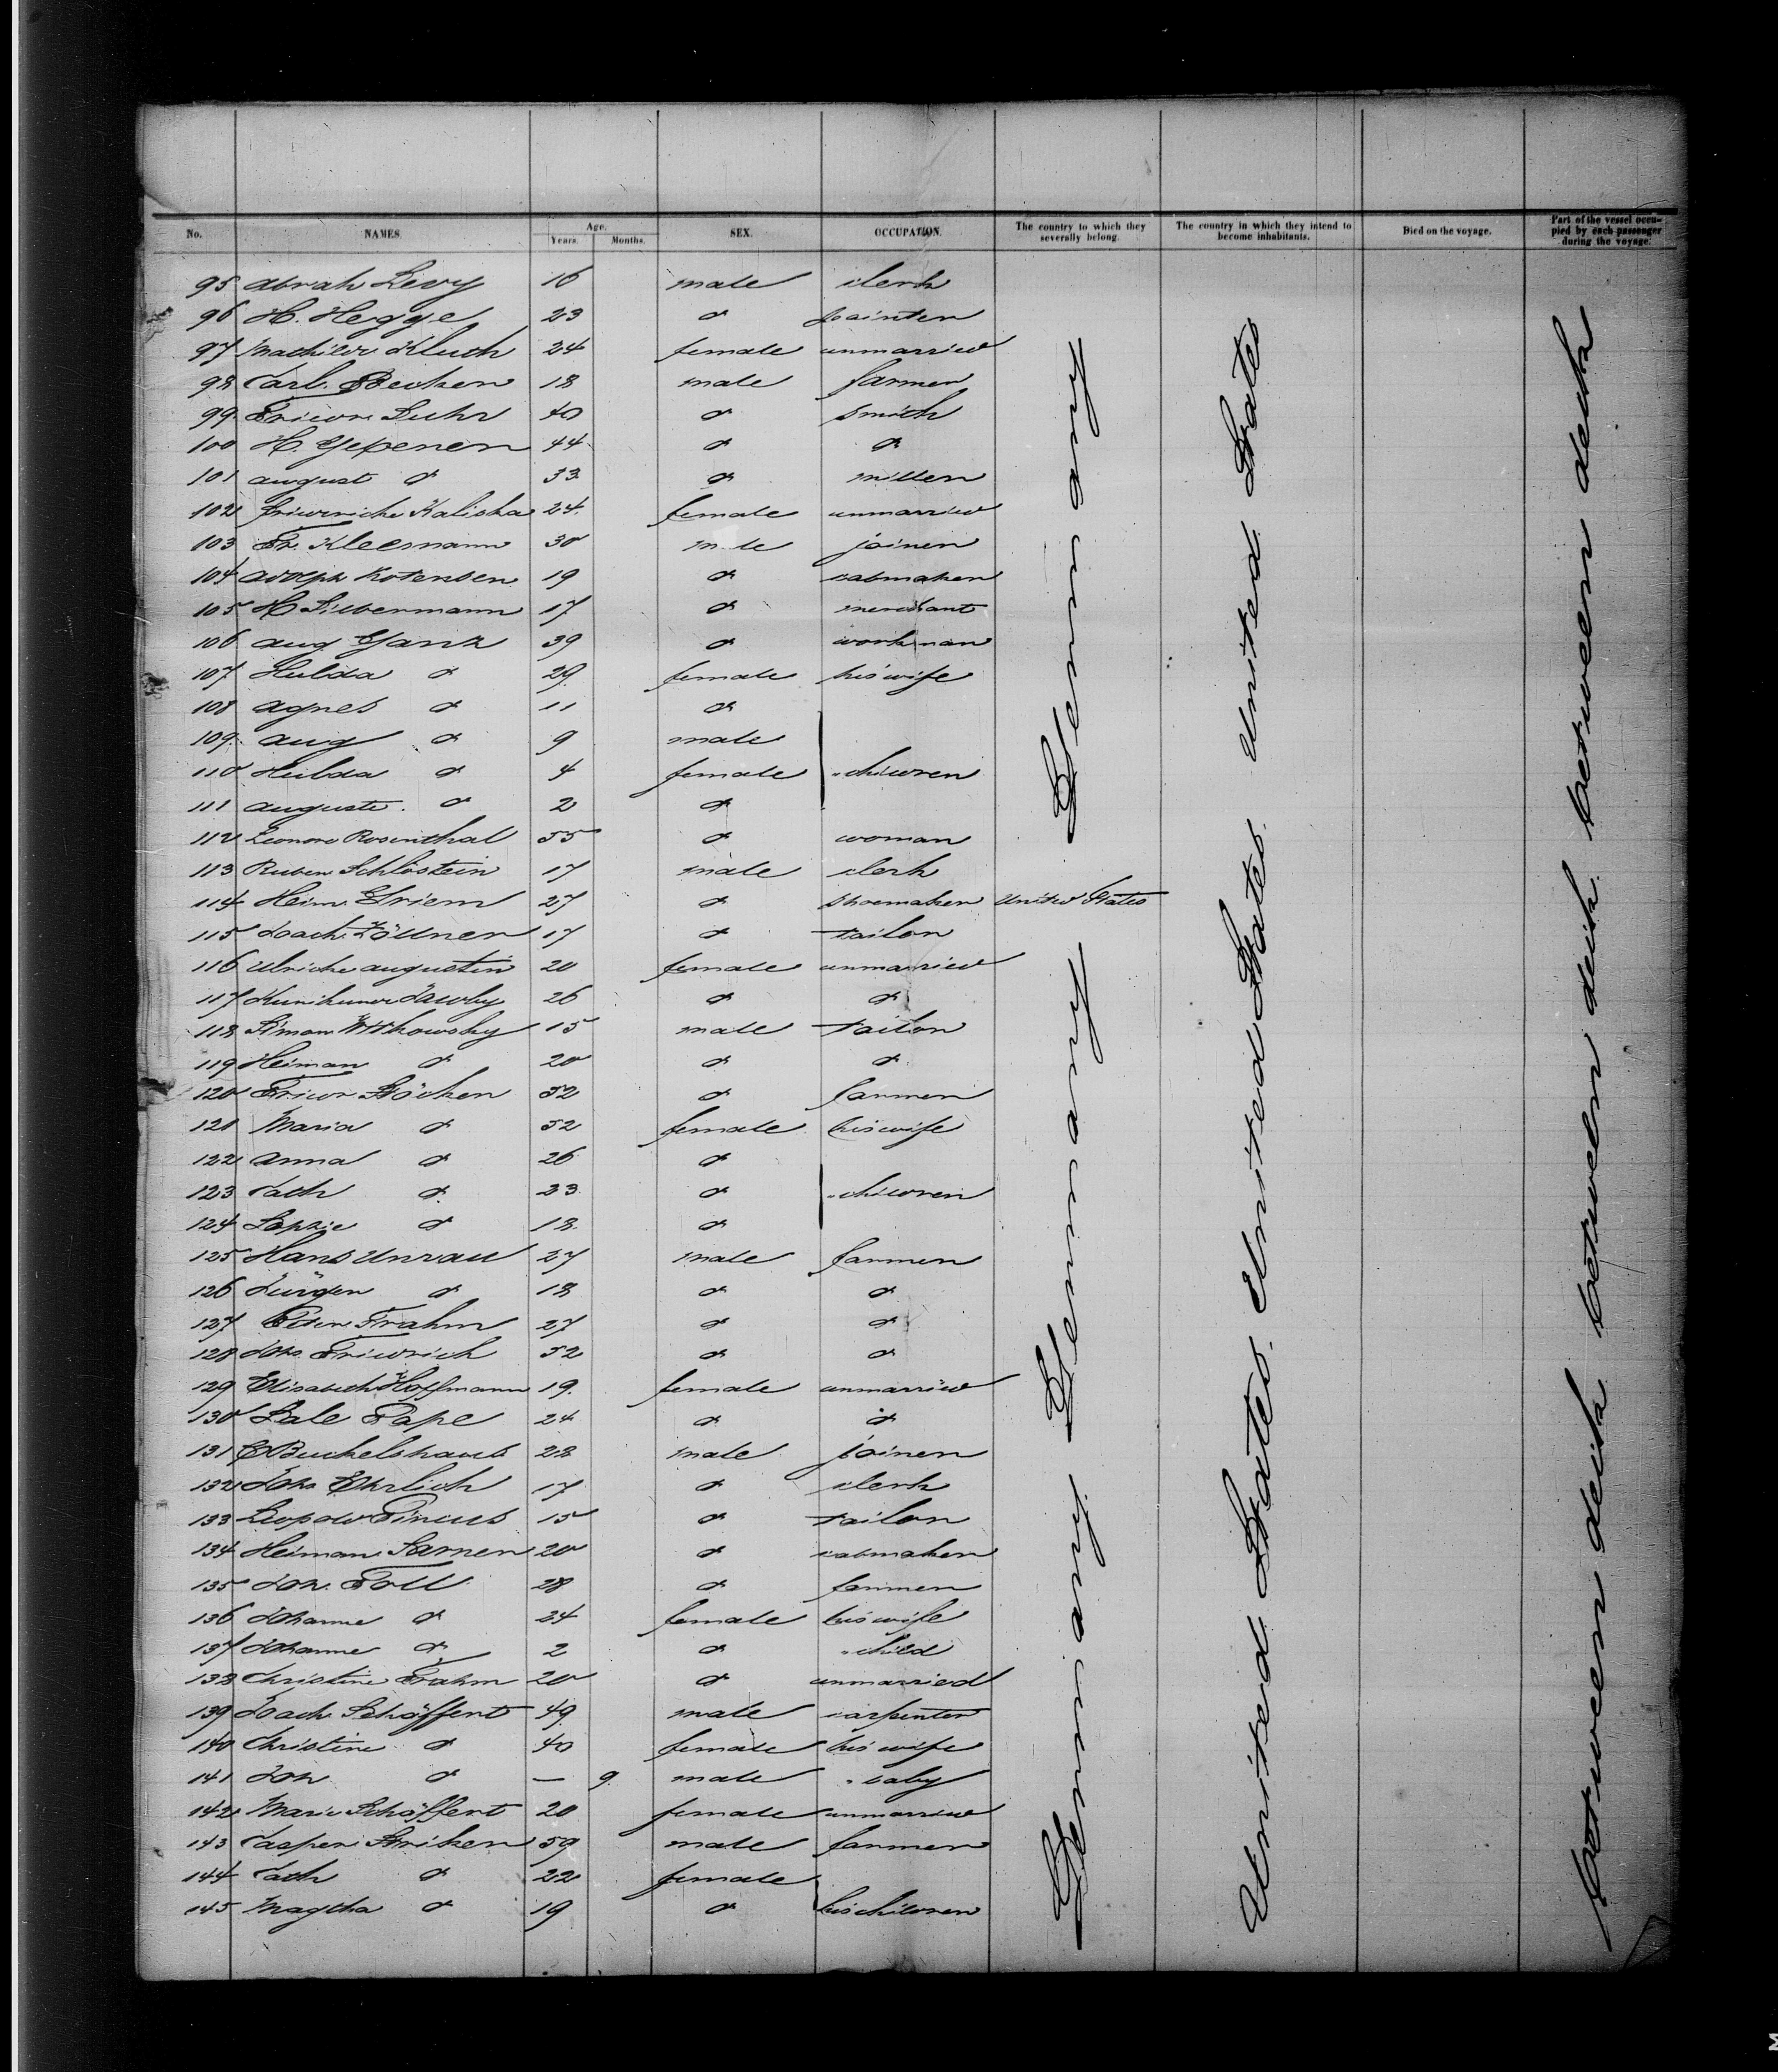 No. NAMES. Age. Years. Months. SEX. OCCUPATION. The country to which they severally belong. The country in which they intend to become inhabitants. Died on the voyage. Part of the vessel occupied by each passenger during the voyage.
95 Abrah Levy 16 male clerk
96 H. Hegge 23 d painter
97 Mathilde Kluth 24 female unmarried
98 Carl Becker 18 male farmer
99 Friedr. Luhr 40 d smith
100 H. Jepenen 44 d d
101 August d 33 d miller
102 Friederike Kaliska 24 female unmarried
103 Fr. Kleesmann 30 m le joiner
104 Adolph Rotensen 19 d cabmaker
105 H Silbermann 17 d merchant
106 Aug Ganz 39 d workman
107 Hulda d 29 female his wife
108 Agnes d 11 d
109 Aug d 9 male
110 Hulda d 4 female " children
111 Auguste d 2 d
112 Leonore Rosenthal 55 d woman
113 Ruben Schlöstein 17 male clerk
114 Heinr. Griem 27 d shoemaker United States
115 Joach. Zöllner 17 d tailor
116 Ulricke Augustin 20 female unmarried
117 Kunikunde 26 d d
118 Simon Witkowsky 15 male tailor
119 Heiman d 20 d d
120 Friedr 52 d farmer
121 Maria d 52 female his wife
122 Anna d 26 d
123 Cath d 23 d " children
124 Sophie d 18 d
125 Hans Unrau 27 male farmer
126 Jürgen d 18 d d
127 Peter Frahm 27 d d
128 Johs. Friedrich 52 d d
129 Elisabeth Hoffmann 19 female unmarried
130 Lale Pape 24 d d
131 C Buchelshaus 28 male joiner
132 Johs Ehrlich 17 d clerk
133 Leopold Pincus 15 d tailor
134 Heiman Sarner 20 d cabmaker
135 Joh. Foll 28 d farmer
136 Johanne d 24 female his wife
137 Johanne d 2 d " child
138 Christine Frahm 20 d unmarried
139 Joach. Schöffert 49 male carpenter
140 Christine d 40 female his wife
141 Joh d — 9 male " baby
142 Marie Schöffert 20 female unmarried
143 Casper 59 male farmer
144 Cath d 22 female
145 Magtha d 19 d his children
Germany Germany Germany Germany
United States United States United States United States
between deck between deck between deck between deck